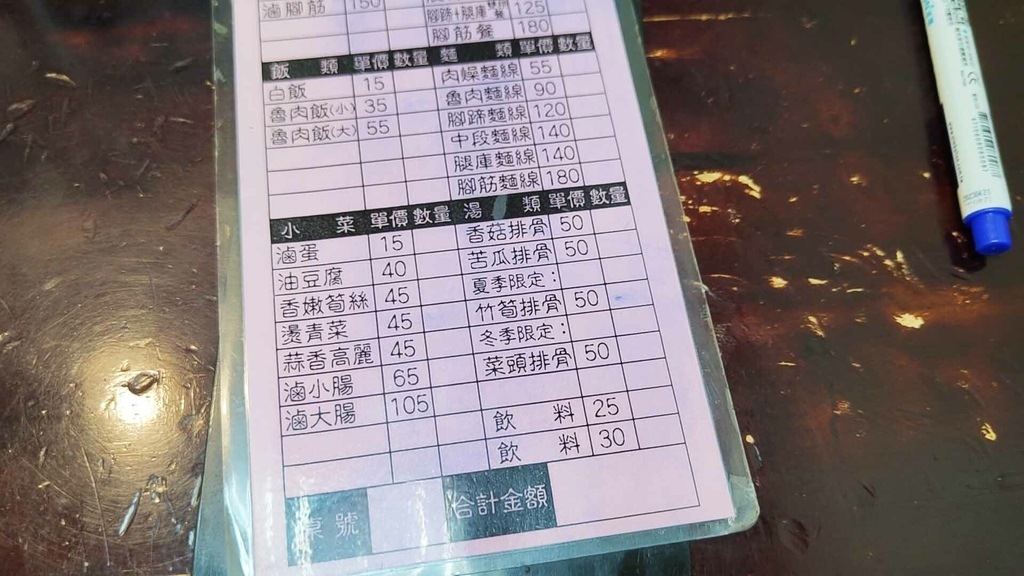 滷腳筋 150
125
腳筋餐 180
飯 類 單價 數量 麵 類 單價 數量
白飯 15 肉燥麵線 55
魯肉飯(小) 35 魯肉麵線 90
魯肉飯(大) 55 腳蹄麵線 120
中段麵線 140
腿庫麵線 140
腳筋麵線 180
小 菜 單價 數量 湯 類 單價 數量
滷蛋 15 香菇排骨 50
油豆腐 40 苦瓜排骨 50
香嫩筍絲 45 夏季限定:
燙青菜 45 竹筍排骨 50
蒜香高麗 45 冬季限定:
滷小腸 65 菜頭排骨 50
滷大腸 105
飲 料 25
飲 料 30
桌 號 合計金額